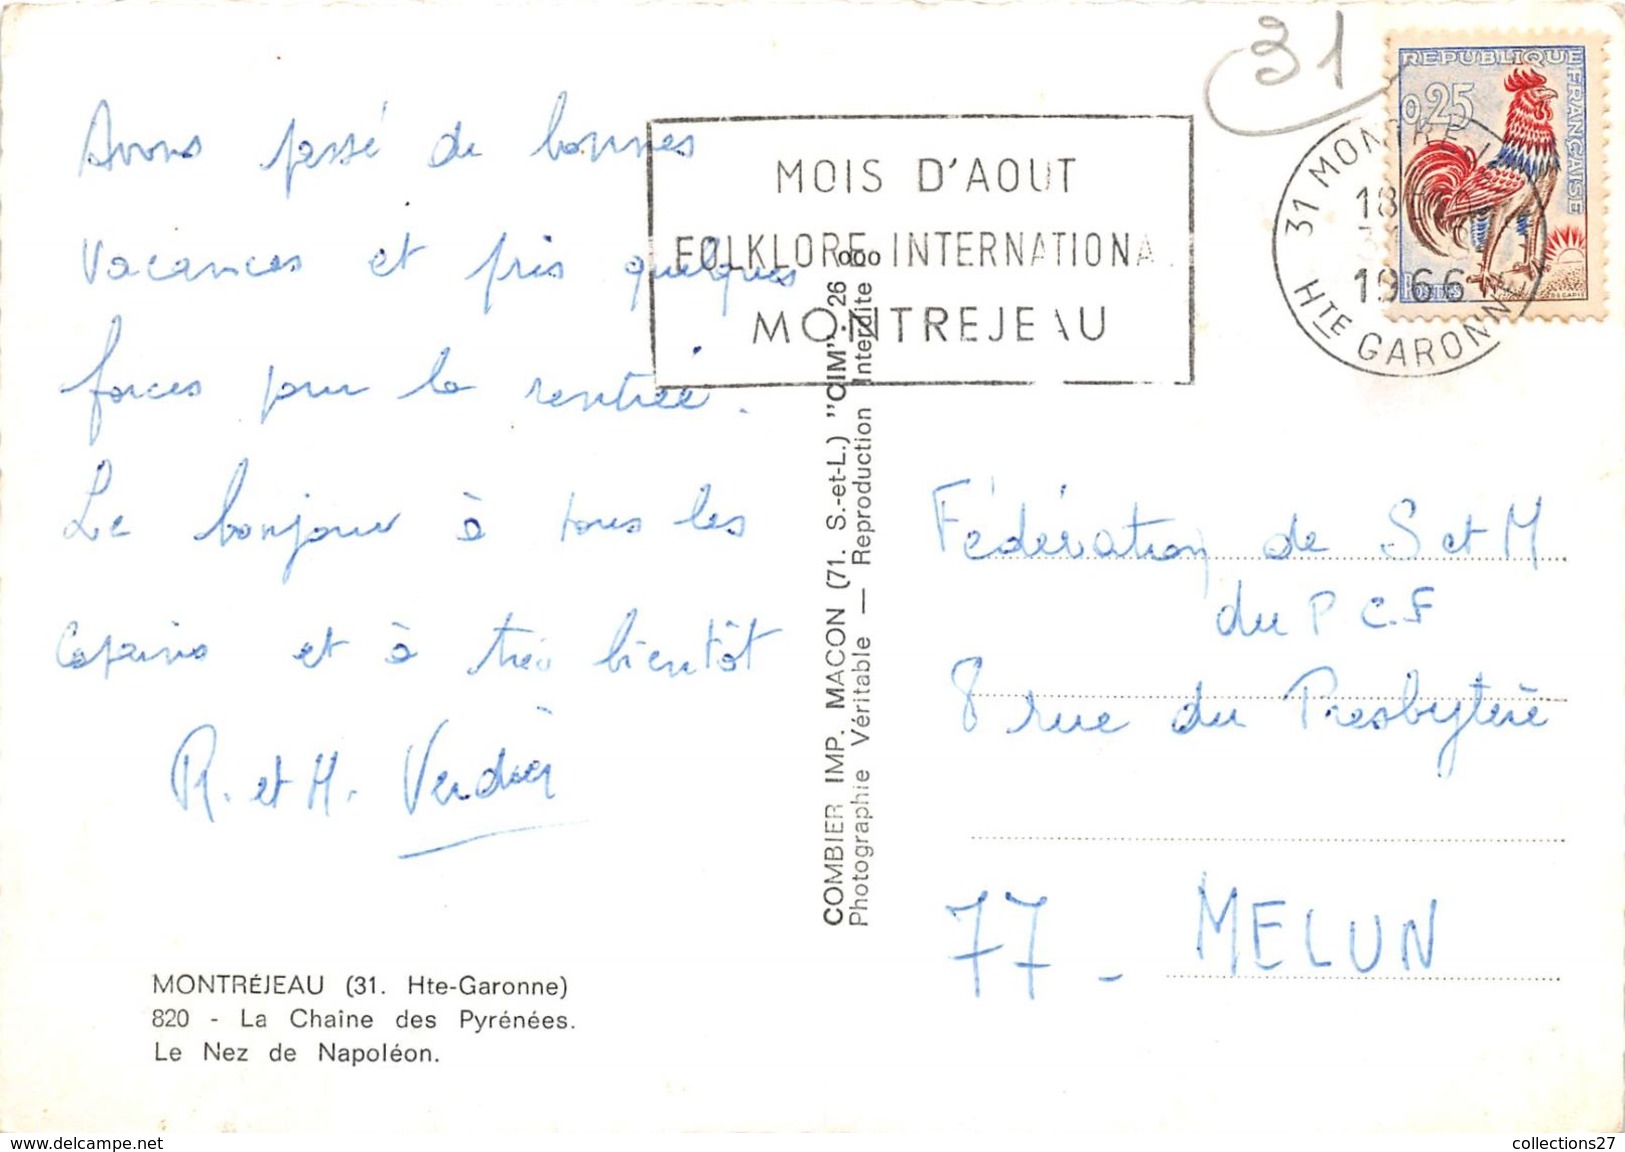 Avons passé de bonnes
vacances et pris quelques
forces pour la rentrée.
Le bonjour à tous les
Copains et à très bientôt
R. et M. Verdier
MONTRÉJEAU (31. Hte-Garonne)
820 - La Chaîne des Pyrénées.
Le Nez de Napoléon.
COMBIER IMP. MACON (71. S.-et-L.) "CIM"
Photographie Véritable — Reproduction Interdite
26
MOIS D'AOUT
FOLKLORE INTERNATIONA
MONTREJEAU
31
31 MONTREJ
18
1966
HTE GARONNE
REPUBLIQUE
FRANÇAISE
0,25
POSTES
DECARIS
Fédération de S et M
du P C.F
8 rue du Presbytère
77 - MELUN
www.delcampe.net
collections27